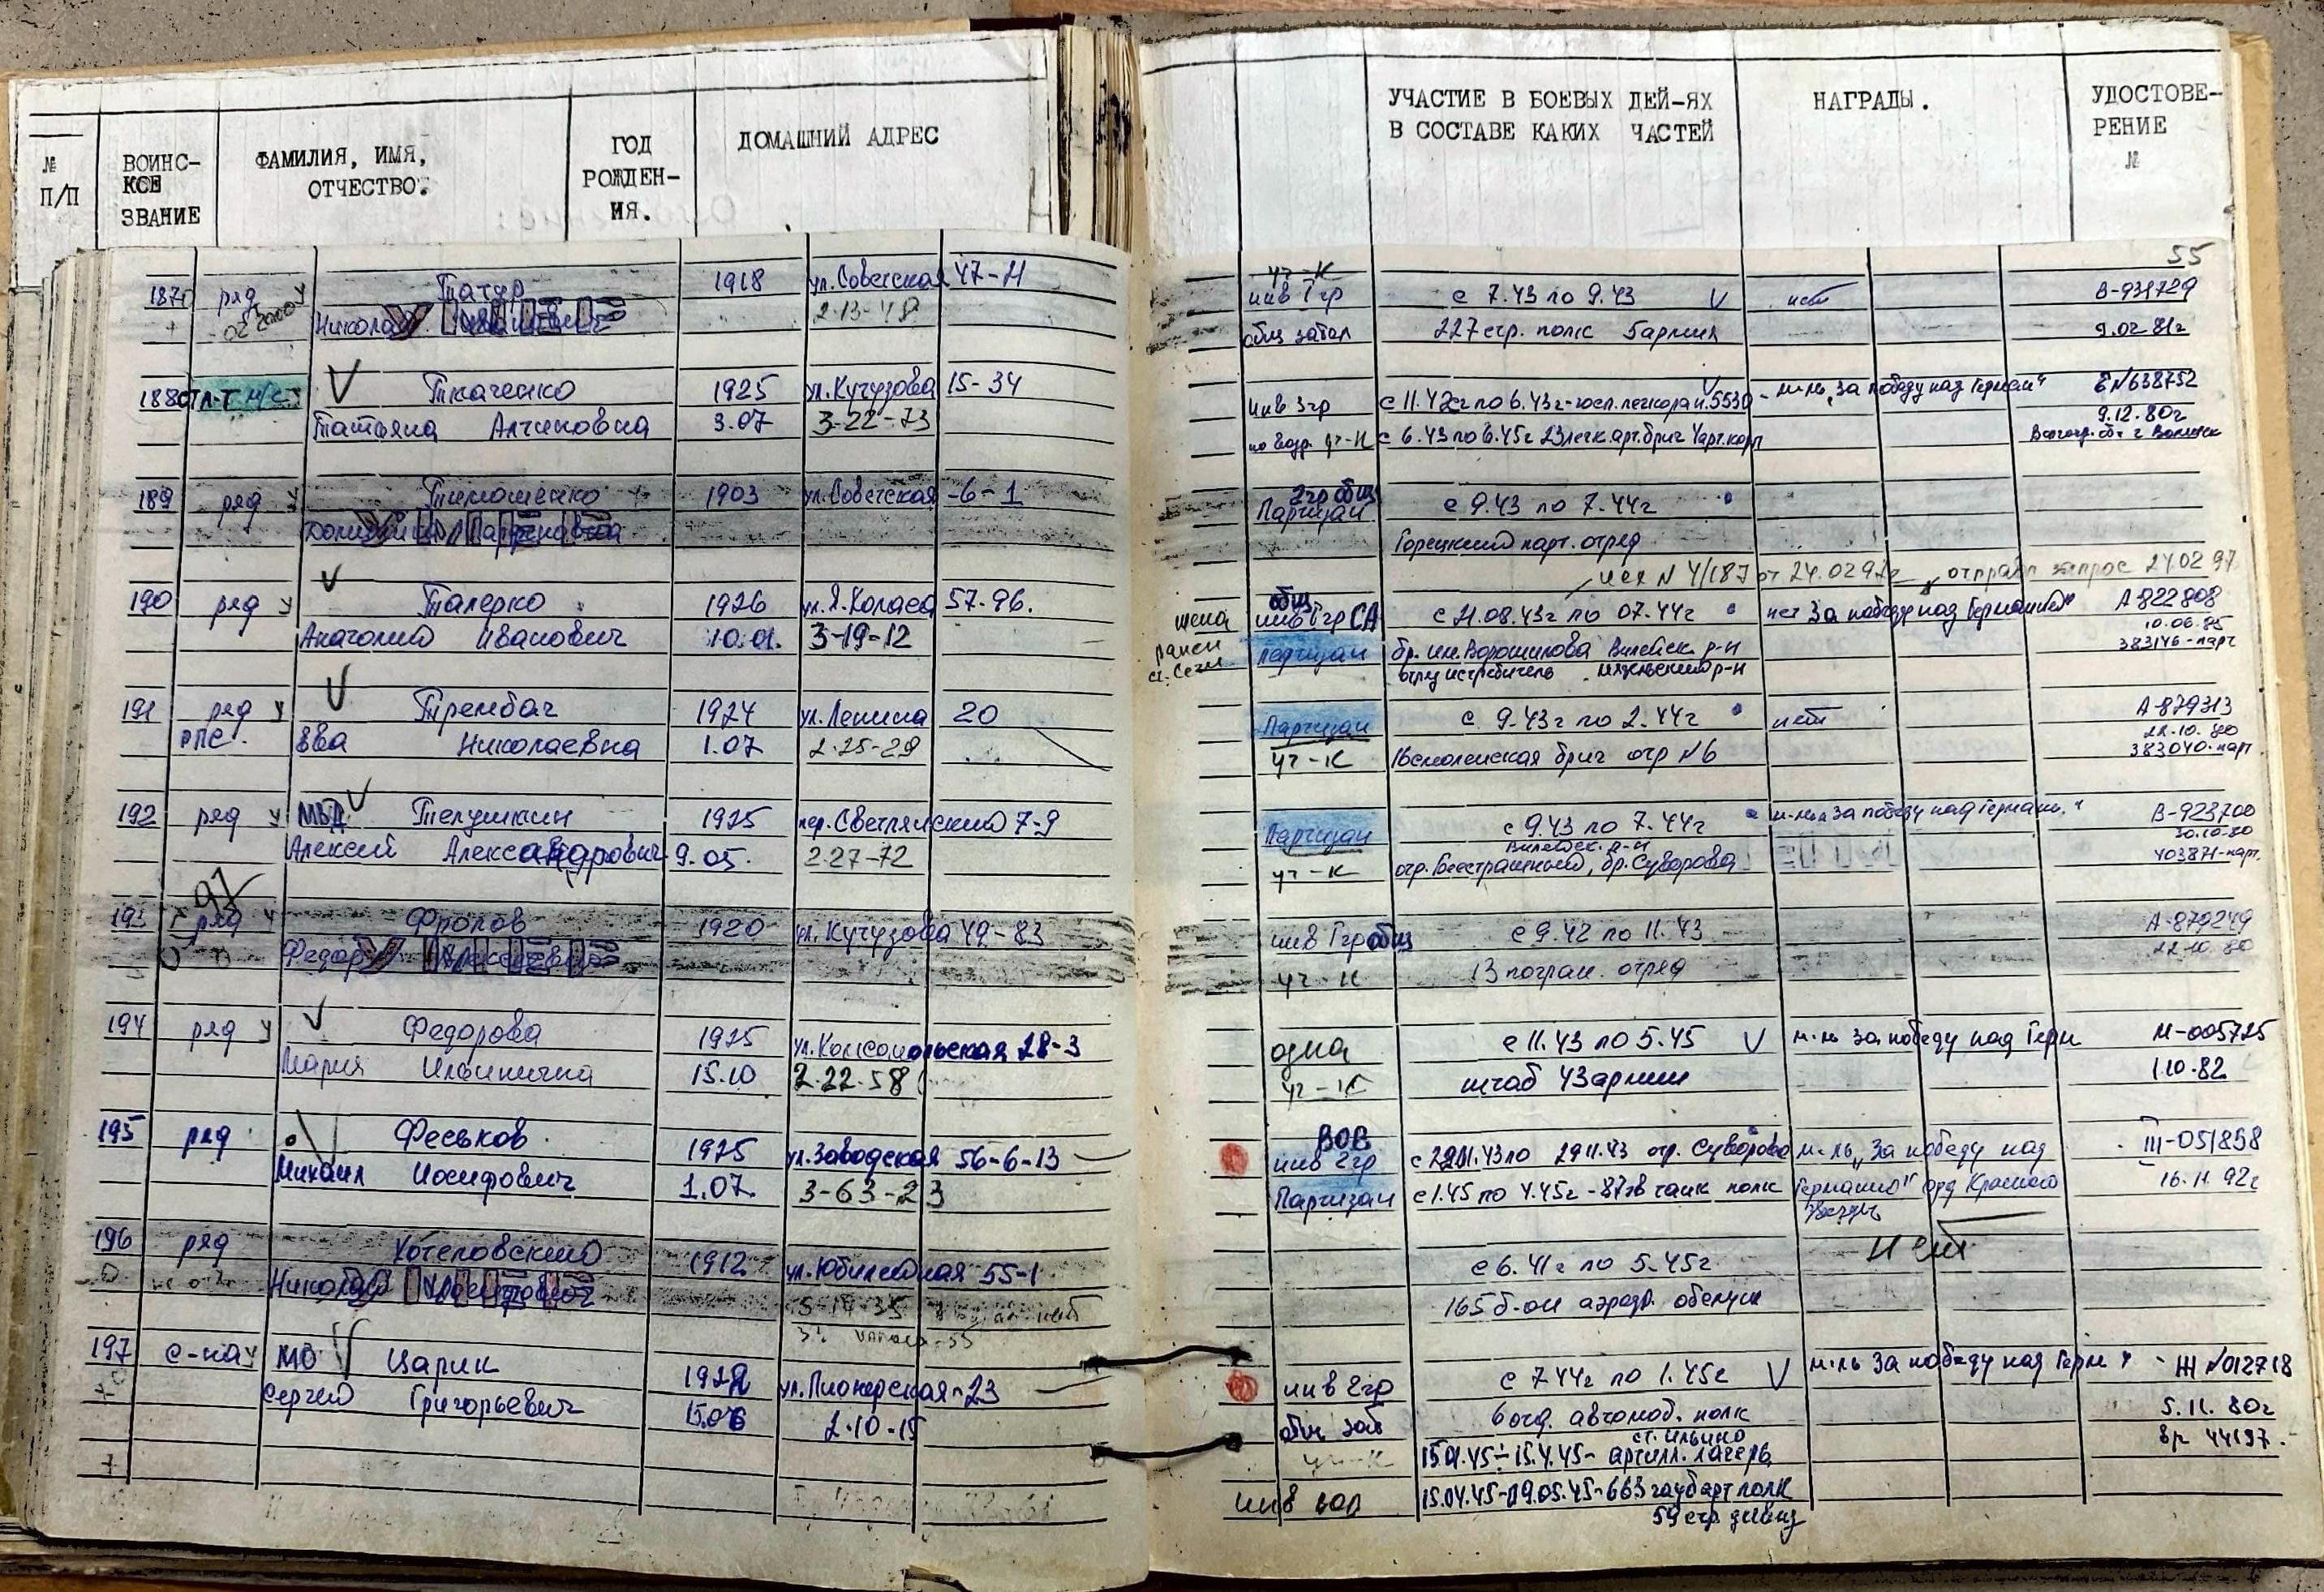 № П/П
ВОИНС-КОЕ ЗВАНИЕ
ФАМИЛИЯ, ИМЯ, ОТЧЕСТВО.
ГОД РОЖДЕН-ИЯ.
ДОМАШНИЙ АДРЕС
УЧАСТИЕ В БОЕВЫХ ДЕЙ-ЯХ
В СОСТАВЕ КАКИХ ЧАСТЕЙ
НАГРАДЫ.
УДОСТОВЕ-РЕНИЕ №
55
187 ряд у Татур 1918 ул. Советская 47-Н
Николай 2-13-48
уч-к
инв Iгр с 7.43 по 9.43 V нет В-931729
общ забол 227 стр. полк 5 армия 9.02 81г
188 ст л-т м/с V Ткаченко 1925 ул. Кутузова 15-34
Татьяна 3.07 3-22-73
инв 3гр м-ль "За победу над Герман" 9.12.80г
по возр. уч-к с 6.43 по 6.45г 23 легк. арт. бриг 4 арт. корп
189 ряд у Тимошенко 1903 ул. Советская -6-1
2гр общ
Партизан с 9.43 по 7.44г
Горецкий парт. отряд
исх N 4/187 от 24.02 97г отправл запрос 24.02 97
190 ряд у V Талерко 1926 ул. Я. Коласа 57-96.
Анатолий Иванович 10.01. 3-19-12
общ
инв Iгр СА с 21.08.43г по 07.44г нет За победу над Германией А 822808
10.06.85
Партизан бр. им. Ворошилова Вилейск. р-н 383146-парт
отряд истребитель Мядельский р-н
191 ряд у V Трембач 1924 ул. Ленина 20
Николаевна 1.07 2-25-29
Партизан с 9.43г по 2.44г нет А-879313
22.10.80
уч-к 16 смоленская бриг отр N6 383040-парт
192 ряд у МВД V Телушкин 1925 пер. Светлянский 7-9
Алексей Александрович 9.05. 2-27-72
Партизан с 9.43 по 7.44г м-ль За победу над Герман." В-923700
Вилейск. р-н 30.10.80
уч-к отр. Бесстрашный, бр. Суворова 403871-парт.
97
193 ряд у Фролов 1920 ул. Кутузова 49-83
Федор
инв Iгр общ с 9.42 по 11.43 А-879249
уч-к 13 погран. отряд 22.10.80
194 ряд у V Федорова 1925 ул. Комсомольская 28-3
Мария Ильинична 15.10 2.22.58
одна с 11.43 по 5.45 V м-ль За победу над Герм М-005725
уч-к штаб 43 армии 1.10.82
195 ряд Феськов 1925 ул. Заводская 56-6-13
Михаил Иосифович 1.07. 3-63-23
ВОВ
инв 2гр 29.11.43 отр. Суворова м-ль "За победу над III-051898
Партизан с 1.45 по 4.45г - 87 гв танк полк Германией" орд Красной 16.11 92г
Звезды
196 ряд Хотеловский 1912 ул. Юбилейная 55-1
Николай
с 6.41г по 5.45г нет
165 б-он аэродр. обслуж
197 с-на у МО V Царик 1922 ул. Пионерская-23
Сергей Григорьевич 15.06 2-10-15
инв 2гр с 7.44г по 1.45г V м-ль За победу над Герм Ж N012718
общ заб 6 отд. автомоб. полк 5.11.80г
ст. Ильино
уч-к 15.01.45-15.4.45- артилл. лагерь 44197.
15.04.45-09.05.45-663 гауб арт полк
59 стр. дивиз